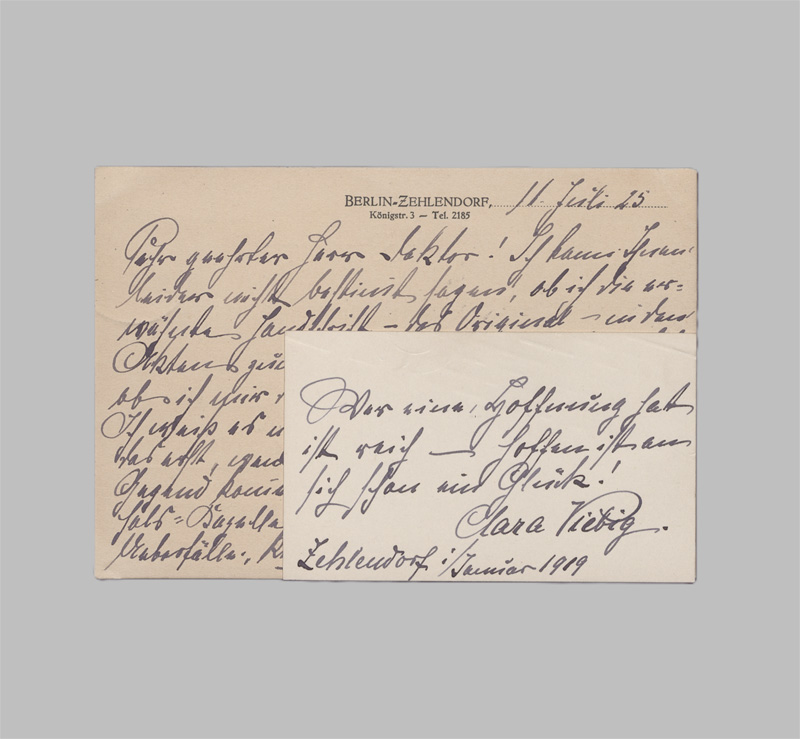 BERLIN-ZEHLENDORF, 11. Juli 25
Königstr. 3 — Tel. 2185
Sehr geehrter Herr Doktor! Ich kann Ihnen
leider nicht bestimt sagen, ob ich die er=
wähnte Handschrift – das Original – in den
Akten
ob ich mir
Ich weiß es
das erst, wenn
Gegend
Ueberfälle.,
Wer eine Hoffnung hat
ist reich — hoffen ist an
sich schon ein Glück!
Clara Viebig.
Zehlendorf i/Januar 1919